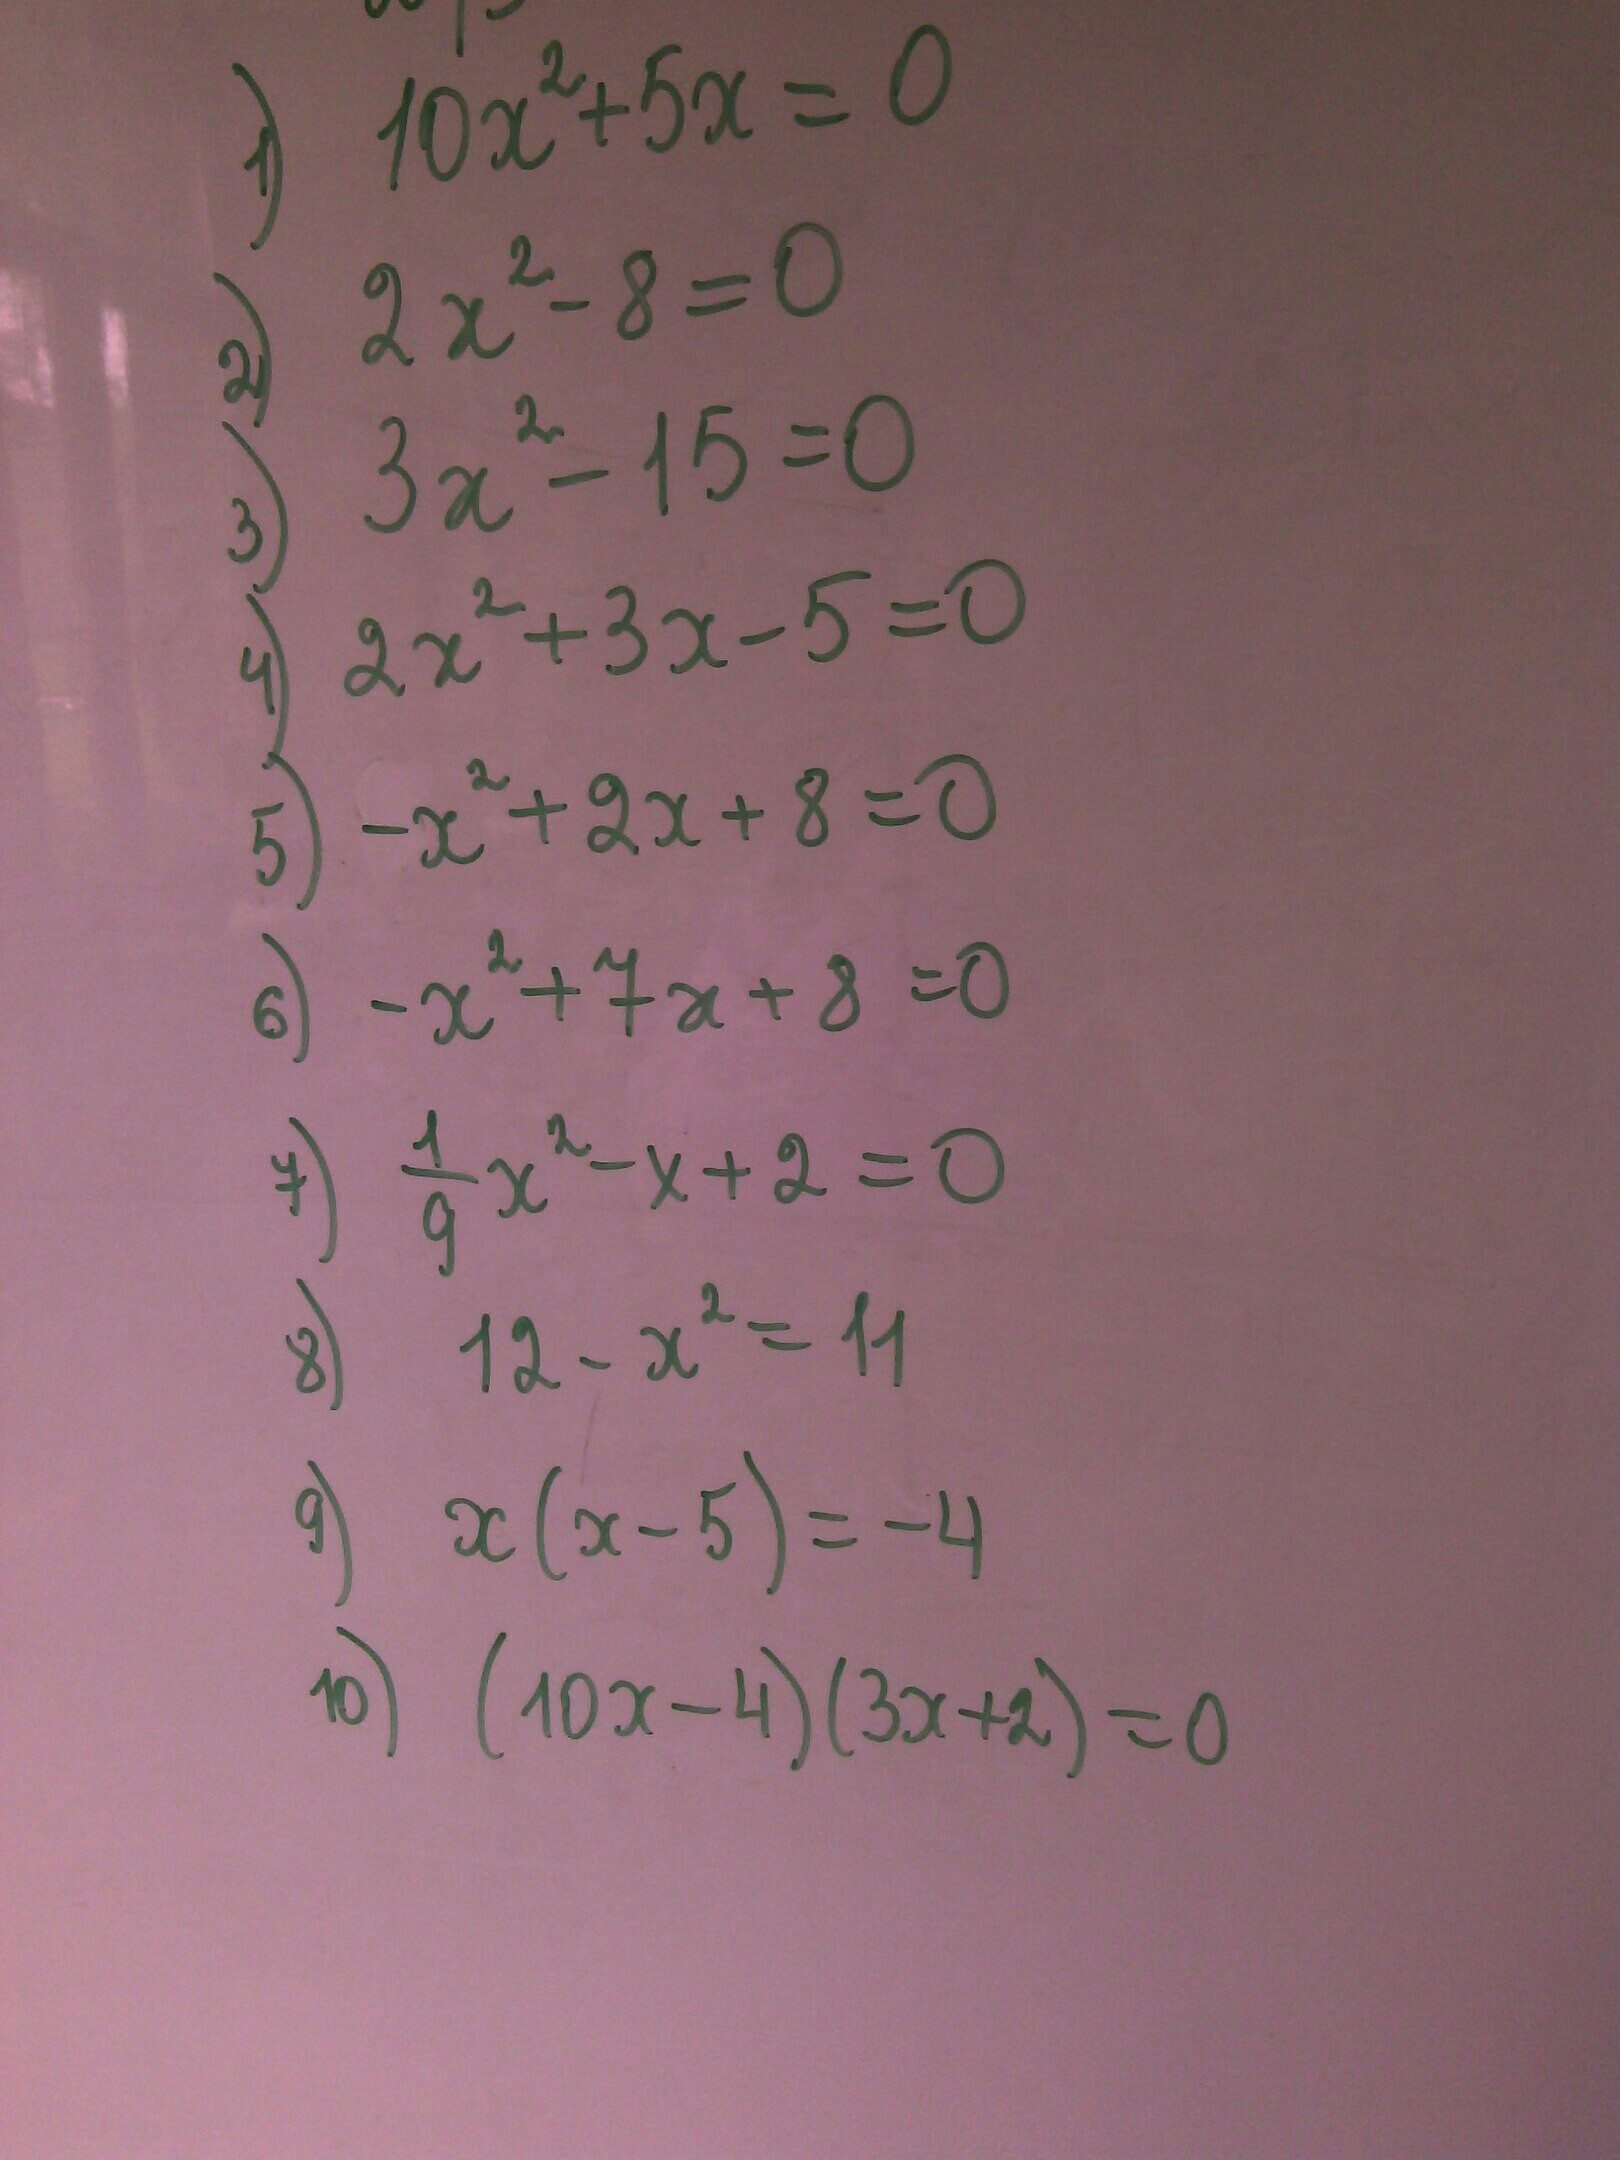 1) 10x²+5x=0
2) 2x²-8=0
3) 3x²-15=0
4) 2x²+3x-5=0
5) -x²+2x+8=0
6) -x²+7x+8=0
7) 1/9x²-x+2=0
8) 12-x²=11
9) x(x-5)=-4
10) (10x-4)(3x+2)=0